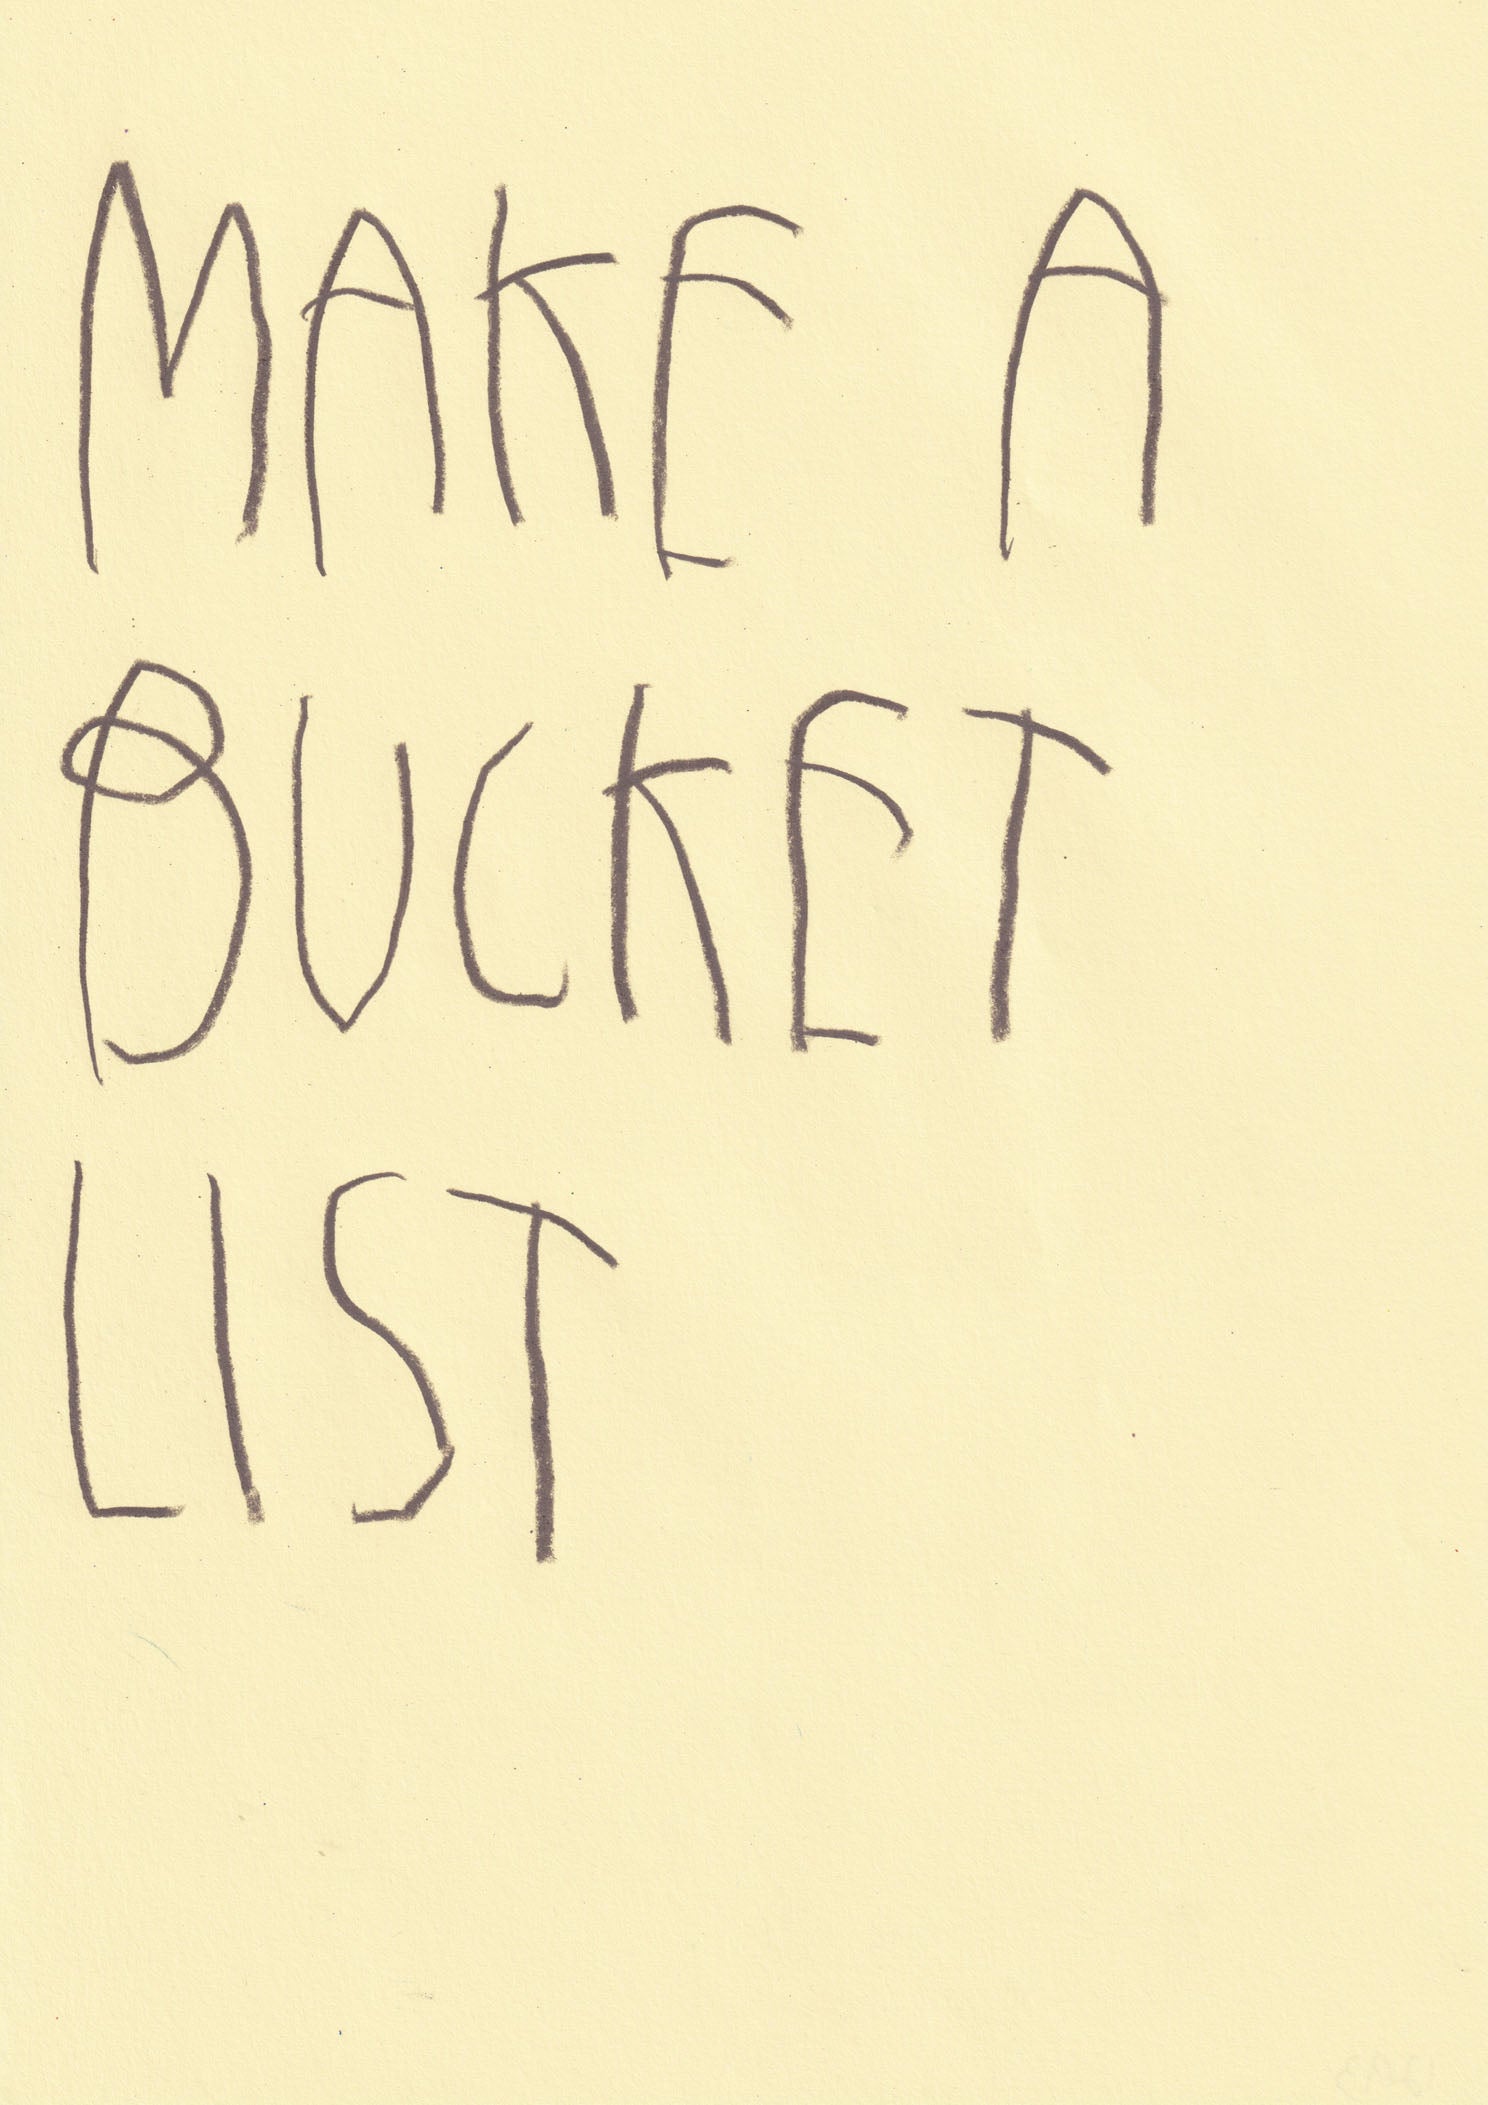 MAKE A
BUCKET
LIST